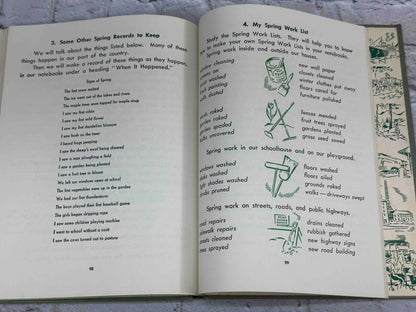 3. Some Other Spring Records to Keep
We will talk about the things listed below. Many of these
things happen in our part of the country.
Then we will make a record of those things as they happen,
in our notebooks under a heading "When It Happened."
Signs of Spring
The last snow melted
The ice went out of the lakes and rivers.
The maple trees were tapped for maple sugar
I saw my first robin
I saw my first wild flower
I saw my first dandelion blossom
I saw buds on the trees
I heard frogs peeping
I saw the sheep's wool being sheared
I saw a man ploughing a field
I saw a garden being planted
I saw a fruit tree in bloom
We left our windows open at school
The first vegetables were up in the garden
We had our first thunderstorm
The boys played their first baseball game
The girls began skipping rope
I saw some children playing marbles
I went to school without a coat
I saw the cows turned out to pasture
98
4. My Spring Work List
Study the Spring Work Lists. They will help you to know
to make your own Spring Work Lists in your notebooks.
Spring work inside and outside our houses.
washed
washed
cleaned
cleaned
new wall paper
closets cleaned
winter clothes put away
floors cared for
furniture polished
raked
raked
spaded
uncovered
fences mended
fruit trees sprayed
gardens planted
grass seed sowed
Spring work in our schoolhouse and on our playground.
windows washed
washed
shades washed
pruned
floors washed
floors oiled
grounds raked
walks—driveways swept
Spring work on streets, roads, and public highways.
repairs
repairs
cleaned
sprayed
drains cleaned
rubbish gathered
new highway signs
new road building
99